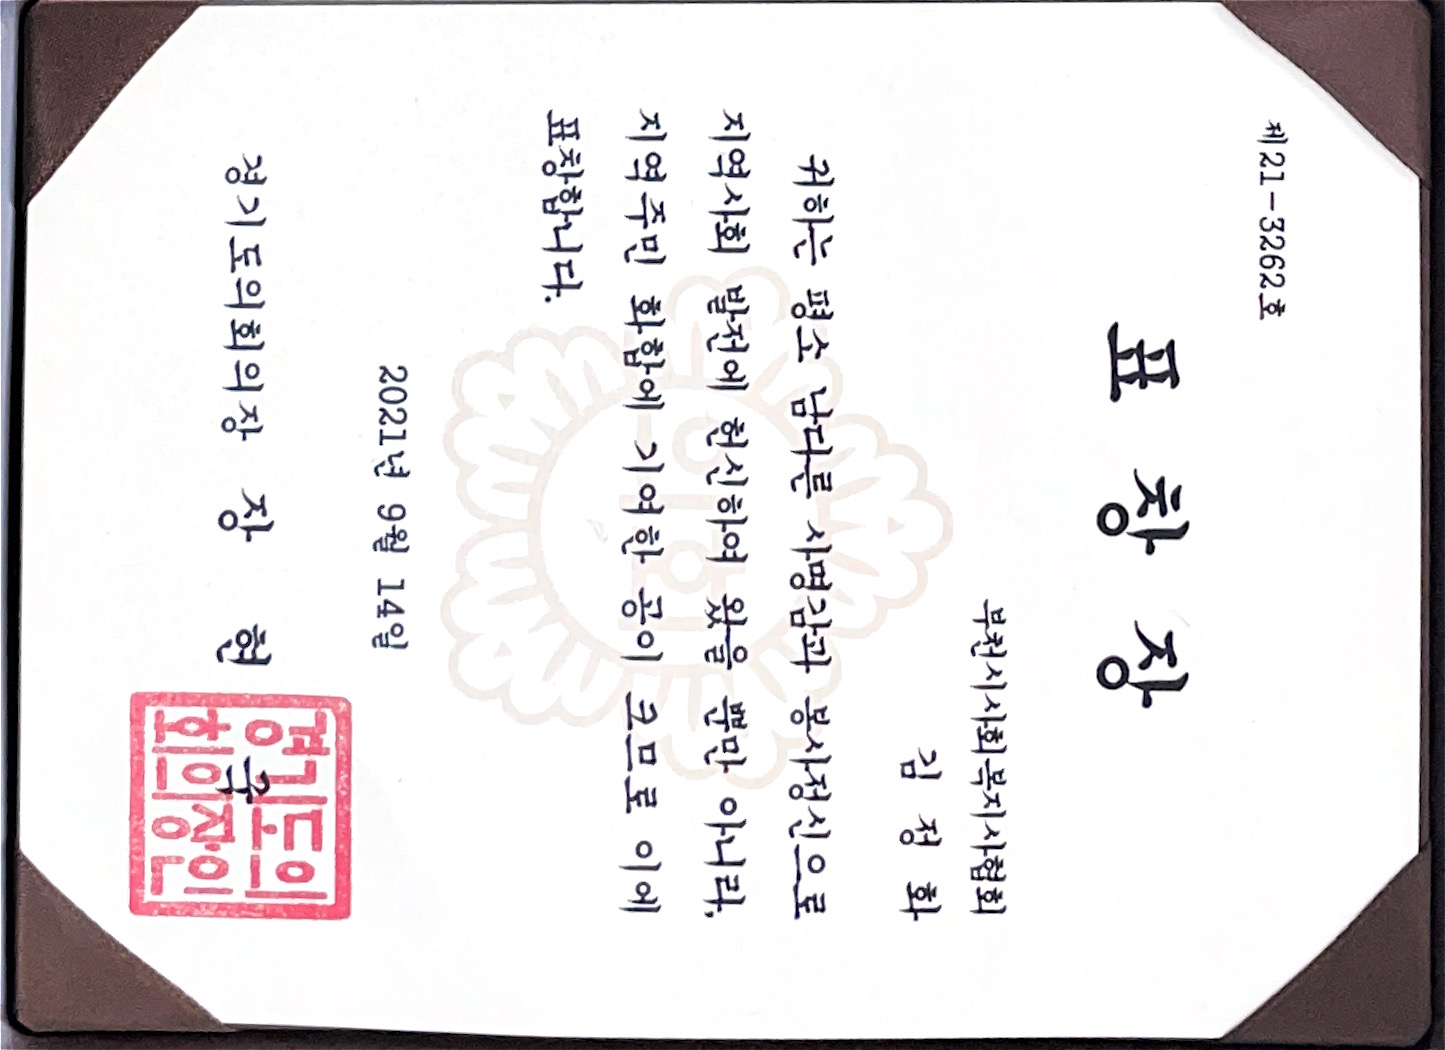 제21-3262호
표 창 장
부천시사회복지사협회
김 정 화
귀하는 평소 남다른 사명감과 봉사정신으로
지역사회 발전에 헌신하여 왔을 뿐만 아니라,
지역주민 화합에 기여한 공이 크므로 이에
표창합니다.
2021년 9월 14일
경기도의회의장 장 현 국
경기도의
회의장인